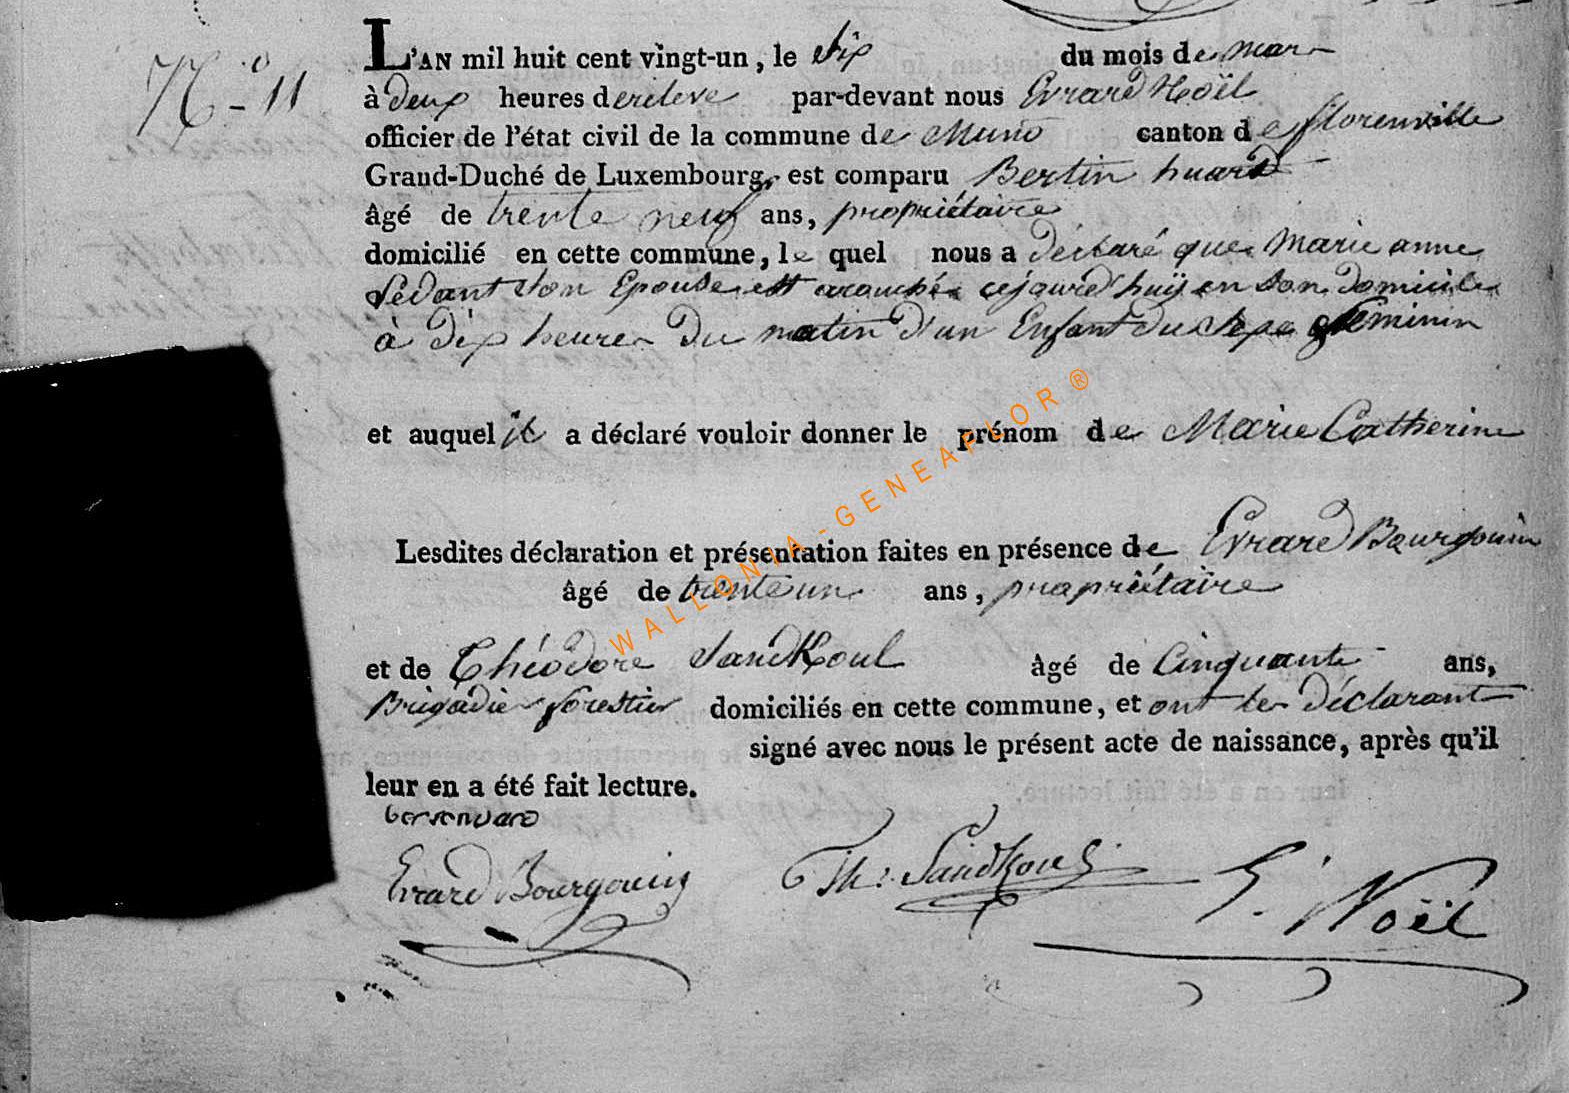 N.o 11
L'AN mil huit cent vingt-un, le six du mois de mars
à deux heures de releve par-devant nous Evrard Noël
officier de l'état civil de la commune de Muno canton de florenville
Grand-Duché de Luxembourg, est comparu Bertin huard
âgé de trente neuf ans, propriétaire
domicilié en cette commune, le quel nous a déclaré que Marie anne
Ledant Son Epouse est acouchée cejourd'huij en Son domicile
à dix heures du matin d'un Enfant du Sexe feminin
et auquel il a déclaré vouloir donner le prénom de Marie Catherine
Lesdites déclaration et présentation faites en présence de Evrard Bourgouin
âgé de trente un ans, propriétaire
et de Théodore Sandkoul âgé de Cinquante ans,
Brigadier forestier domiciliés en cette commune, et ont les déclarant
signé avec nous le présent acte de naissance, après qu'il
leur en a été fait lecture.
Evrard Bourgouin Th: Sandkoul E. Noël
WALLONIA-GENEAFLOR®